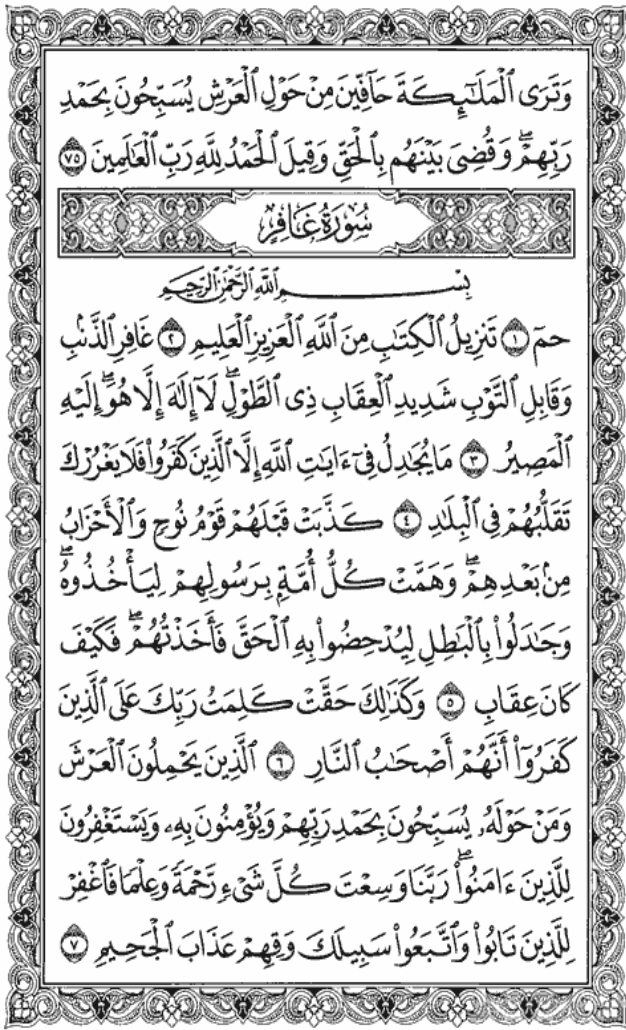 وَتَرَى ٱلْمَلَٰٓئِكَةَ حَآفِّينَ مِنْ حَوْلِ ٱلْعَرْشِ يُسَبِّحُونَ بِحَمْدِ
رَبِّهِمْ ۖ وَقُضِىَ بَيْنَهُم بِٱلْحَقِّ وَقِيلَ ٱلْحَمْدُ لِلَّهِ رَبِّ ٱلْعَٰلَمِينَ ٧٥
سُورَةُ غَافِرٍ
بِسْمِ ٱللَّهِ ٱلرَّحْمَٰنِ ٱلرَّحِيمِ
حمٓ ١ تَنزِيلُ ٱلْكِتَٰبِ مِنَ ٱللَّهِ ٱلْعَزِيزِ ٱلْعَلِيمِ ٢ غَافِرِ ٱلذَّنۢبِ
وَقَابِلِ ٱلتَّوْبِ شَدِيدِ ٱلْعِقَابِ ذِى ٱلطَّوْلِ ۖ لَآ إِلَٰهَ إِلَّا هُوَ ۖ إِلَيْهِ
ٱلْمَصِيرُ ٣ مَا يُجَٰدِلُ فِىٓ ءَايَٰتِ ٱللَّهِ إِلَّا ٱلَّذِينَ كَفَرُوا۟ فَلَا يَغْرُرْكَ
تَقَلُّبُهُمْ فِى ٱلْبِلَٰدِ ٤ كَذَّبَتْ قَبْلَهُمْ قَوْمُ نُوحٍ وَٱلْأَحْزَابُ
مِنۢ بَعْدِهِمْ ۖ وَهَمَّتْ كُلُّ أُمَّةٍۭ بِرَسُولِهِمْ لِيَأْخُذُوهُ ۖ
وَجَٰدَلُوا۟ بِٱلْبَٰطِلِ لِيُدْحِضُوا۟ بِهِ ٱلْحَقَّ فَأَخَذْتُهُمْ ۖ فَكَيْفَ
كَانَ عِقَابِ ٥ وَكَذَٰلِكَ حَقَّتْ كَلِمَتُ رَبِّكَ عَلَى ٱلَّذِينَ
كَفَرُوٓا۟ أَنَّهُمْ أَصْحَٰبُ ٱلنَّارِ ٦ ٱلَّذِينَ يَحْمِلُونَ ٱلْعَرْشَ
وَمَنْ حَوْلَهُۥ يُسَبِّحُونَ بِحَمْدِ رَبِّهِمْ وَيُؤْمِنُونَ بِهِۦ وَيَسْتَغْفِرُونَ
لِلَّذِينَ ءَامَنُوا۟ ۖ رَبَّنَا وَسِعْتَ كُلَّ شَىْءٍ رَّحْمَةً وَعِلْمًا فَٱغْفِرْ
لِلَّذِينَ تَابُوا۟ وَٱتَّبَعُوا۟ سَبِيلَكَ وَقِهِمْ عَذَابَ ٱلْجَحِيمِ ٧